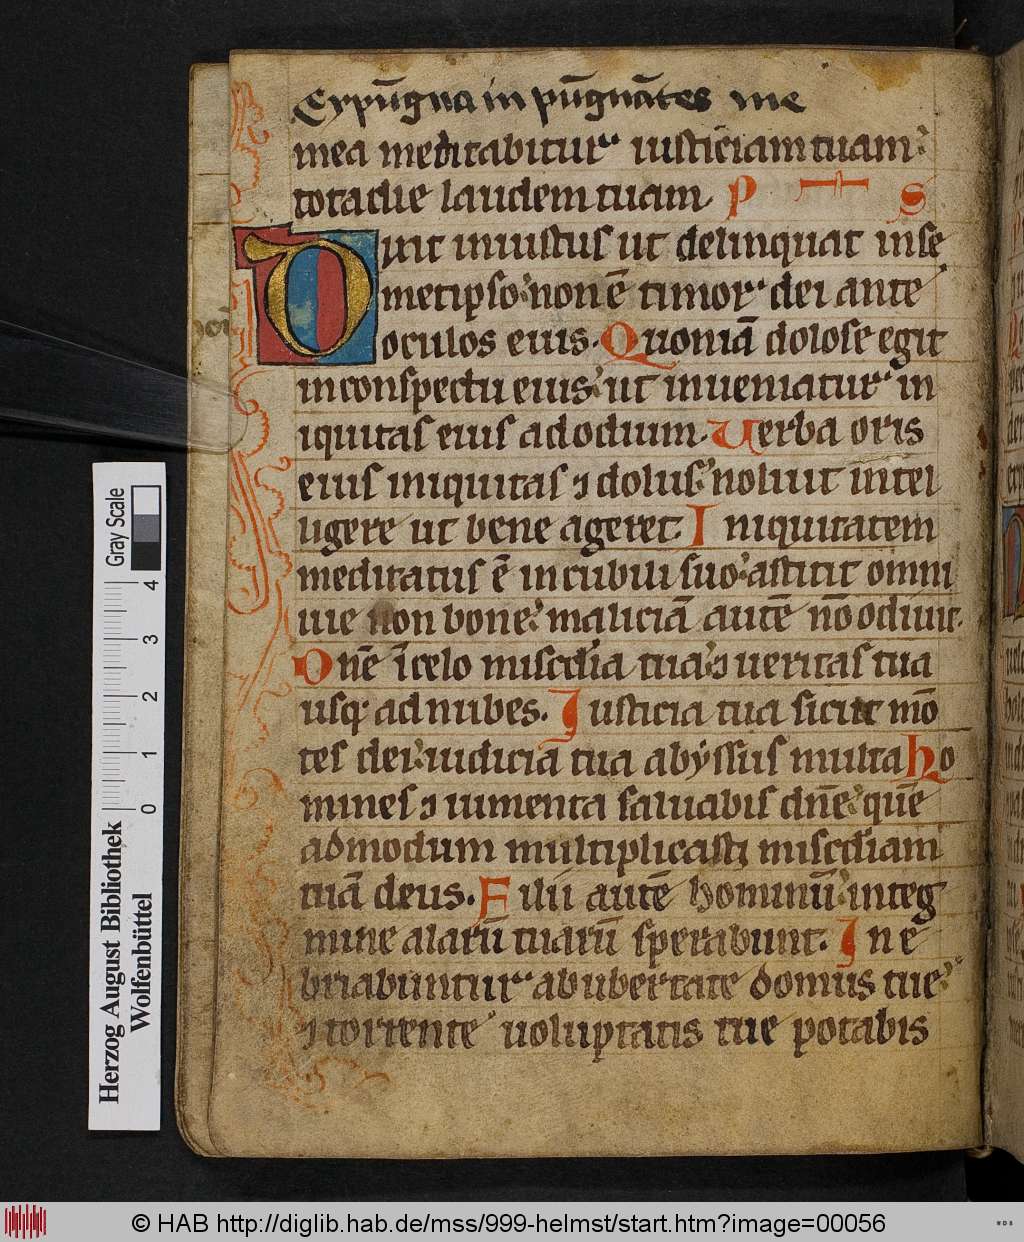 Expūgna inpūgnātes me
mea meditabitur iusticiam tuam
tota die laudem tuam. P S
Dixit iniustus ut delinquat inse
metipso non ē timor dei ante
oculos eius. Quoniā dolose egit
inconspectu eius ut inueniatur in
iquitas eius adodium. Uerba oris
eius iniquitas ⁊ dolus noluit intel
ligere ut bene ageret. Iniquitatem
meditatus ē incubili suo astitit omni
uie non bone maliciā autē nō odiuit.
Dn̄e īcelo misc̄dia tua ⁊ ueritas tua
usq ad nubes. Iusticia tua sicut mō
tes dei iudicia tua abyssus multa Ho
mines ⁊ iumenta saluabis dn̄e quē
admodum multiplicasti misc̄diam
tuā deus. Filii autē hominū integ
mine alarū tuarū sperabunt. Ine
briabuntur abubertate domus tue
⁊ torrente uoluptatis tue potabis
Herzog August Bibliothek
Wolfenbüttel
0 1 2 3 4
Gray Scale
© HAB http://diglib.hab.de/mss/999-helmst/start.htm?image=00056